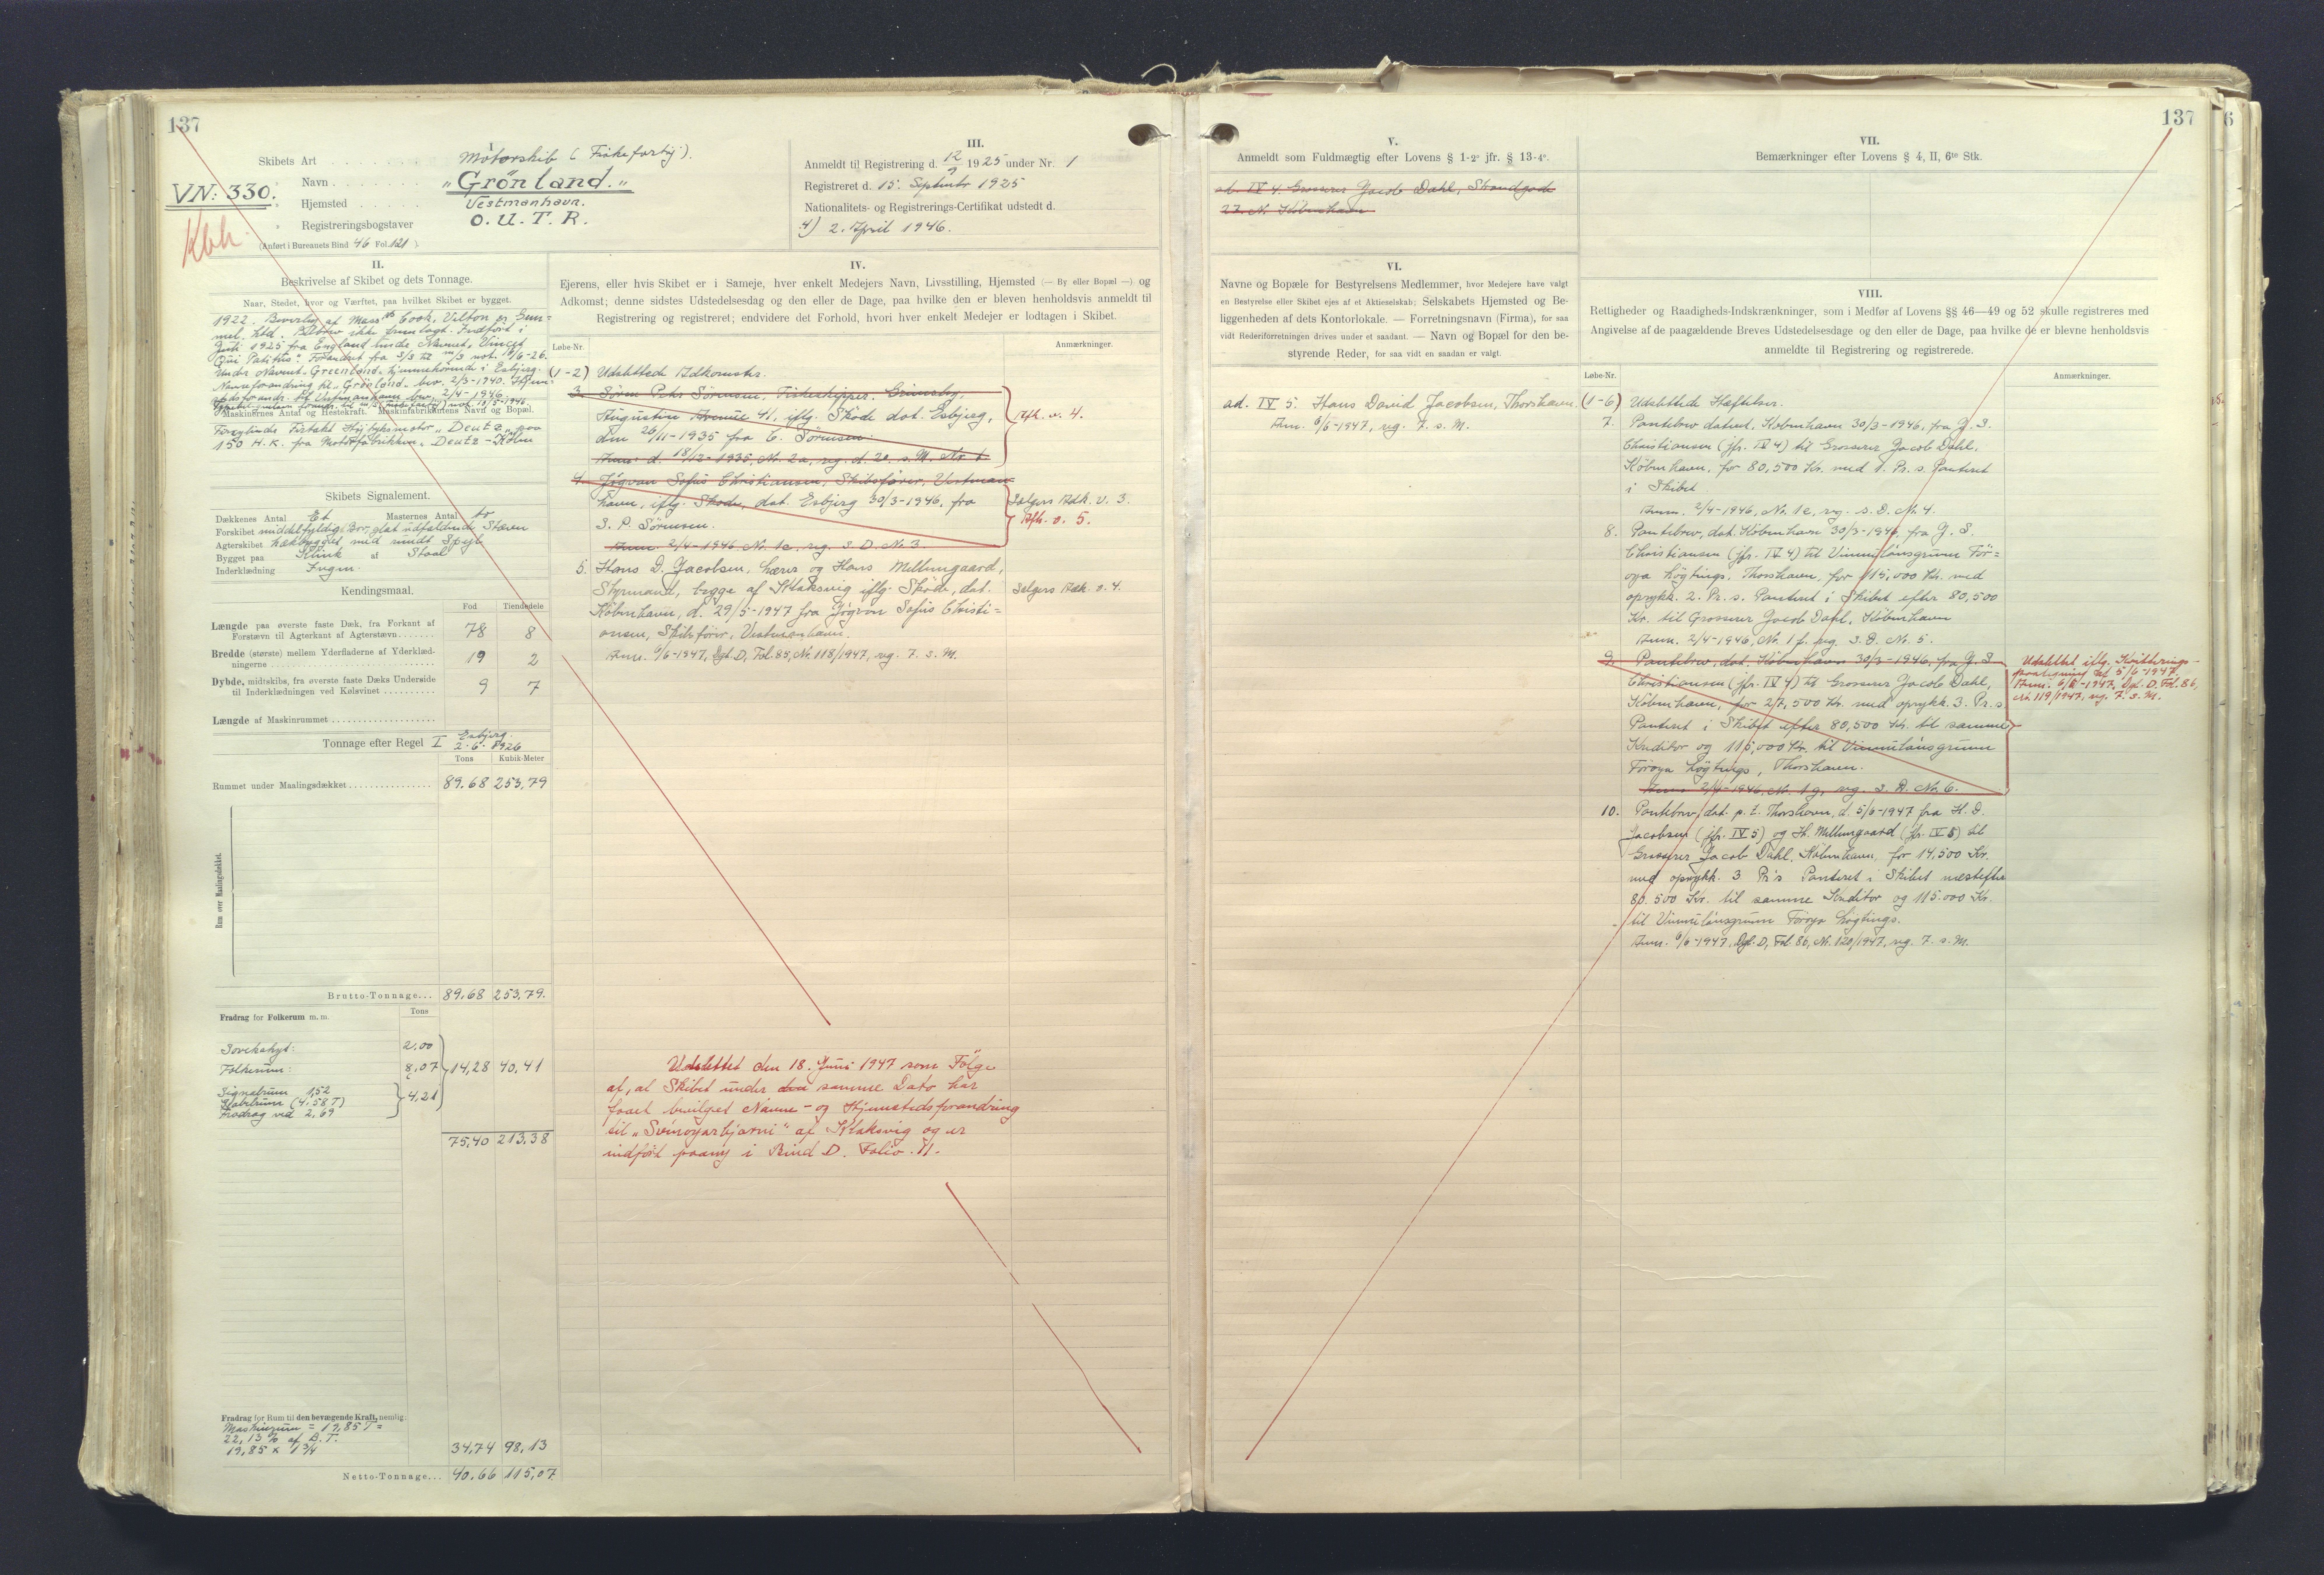 137
Skibets Art . . . . . . . Motorskib (Fiskefartøj).
VN: 330.
" Navn . . . . . . . "Grönland."
" Hjemsted . . . . . Vestmanhavn.
" Registreringsbogstaver O. U. T. R.
Kbh.
(Anført i Bureauets Bind 46 Fol. 121 )
III.
Anmeldt til Registrering d. 12/9 1925 under Nr. 1
Registreret d. 15. Septembr 1925
Nationalitets- og Registrerings-Certifikat udstedt d.
4) 2. April 1946.
II.
Beskrivelse af Skibet og dets Tonnage.
Naar, Stedet, hvor og Værftet, paa hvilket Skibet er bygget.
1922. Beverley af Mass Cook, Velton & Gem=
mel. Ltd. Bilbrev ikke fremlagt. Indført i
Juli 1925 fra England under Navnet "Vincet
Qui Patitur". Forandret fra
under Navnet "Greenland" hjemmehørende i Esbjerg.
Navneforandring til "Grönland" bev. 2/3-1940. Hjem=
stedsforandr. til Vestmanhavn bev. 2/4-1946.
Maskinernes Antal og Hestekraft. Maskinfabrikantens Navn og Bopæl.
Firtakt Højtryksmotor "Deutz" paa
150 H.K. fra Motorfabrikken "Deutz - Köln
Skibets Signalement.
Dækkenes Antal Et Masternes Antal to
Forskibet middelfyldig Bov, glat udfaldende Stævn
Agterskibet hækbygget med rundt Spejl
Bygget paa Klink af Staal
Inderklædning Ingen.
Kendingsmaal.
Fod Tiendedele
Længde paa øverste faste Dæk, fra Forkant af
Forstævn til Agterkant af Agterstævn . . . . . . . 78 8
Bredde (største) mellem Yderfladerne af Yderklæd-
ningerne . . . . . . . 19 2
Dybde, midtskibs, fra øverste faste Dæks Underside
til Inderklædningen ved Kølsvinet . . . . . . . 9 7
Længde af Maskinrummet . . . . . . .
Tonnage efter Regel I Esbjerg. 2-6-1926
Tons Kubik-Meter
Rummet under Maalingsdækket . . . . . . . 89.68 253,79
Rum over Maalingsdækket.
Brutto-Tonnage . . . 89,68 253,79.
Fradrag for Folkerum m. m. Tons
2,00
Folkerum: 8,07 14,28 40,41
Signalrum 1,52
4,21
Fradrag ved 2,69
75,40 213,38
Fradrag for Rum til den bevægende Kraft, nemlig:
Maskinrum = 19,85 T =
22,13 % af B.T.
19,85 x 1 3/4 34,74 98,13
Netto-Tonnage . . . 40.66 115,07
IV.
Ejerens, eller hvis Skibet er i Sameje, hver enkelt Medejers Navn, Livsstilling, Hjemsted (— By eller Bopæl —) og
Adkomst; denne sidstes Udstedelsesdag og den eller de Dage, paa hvilke den er bleven henholdsvis anmeldt til
Registrering og registreret; endvidere det Forhold, hvori hver enkelt Medejer er lodtagen i Skibet.
Løbe-Nr. Anmærkninger.
(1-2) Udslettede Adkomster.
3. Søren Peter Sørensen, Fiskeskipper, Grimsby,
Augustin Avenue 41, iflg. Skøde dat. Esbjerg,
den 26/11-1935 fra C. Sørensen.
Anm. d. 18/12-1935, Nr. 2a, reg. d. 20. s. M. Nr. 1.
Afh. v. 4.
4. Jögvan Sofus Christiansen, Skibsfører, Vestman-
havn, iflg. Skøde, dat. Esbjerg 30/3-1946, fra
S. P. Sørensen.
Anm. 2/4-1946, Nr. 1c, reg. s. D. Nr. 3
Sælgers Adk. v. 3.
Afh. v. 5.
5. Hans D. Jacobsen, Lærer og Hans Mellemgaard,
Styrmand, begge af Klaksvig iflg. Skøde, dat.
København, d. 29/5-1947 fra Jögvan Sofus Christi=
ansen, Skibsfører, Vestmanhavn.
Anm. 6/6-1947, Dgl. D, Fol. 85, Nr. 118/1947, reg. 7. s. M.
Sælgers Adk. v. 4.
Udslettet den 18. Juni 1947 som Følge
af, at Skibet under den samme Dato har
faaet bevilget Navne- og Hjemstedsforandring
til "Svinoyarbjarni" af Klaksvig og er
indført paany i Bind D. Folio 11.
137
V.
Anmeldt som Fuldmægtig efter Lovens § 1-2º jfr. § 13-4º.
ad. IV 4 Grosserer Jacob Dahl, Strandgade
27. N. København
VI.
Navne og Bopæle for Bestyrelsens Medlemmer, hvor Medejere have valgt
en Bestyrelse eller Skibet ejes af et Aktieselskab; Selskabets Hjemsted og Be-
liggenheden af dets Kontorlokale. — Forretningsnavn (Firma), for saa
vidt Rederiforretningen drives under et saadant. — Navn og Bopæl for den be-
styrende Reder, for saa vidt en saadan er valgt.
ad. IV 5. Hans David Jacobsen, Thorshavn.
Anm. 6/6-1947, reg. 7. s. M.
VII.
Bemærkninger efter Lovens § 4, II, 6te Stk.
VIII.
Rettigheder og Raadigheds-Indskrænkninger, som i Medfør af Lovens §§ 46—49 og 52 skulle registreres med
Angivelse af de paagældende Breves Udstedelsesdage og den eller de Dage, paa hvilke de er blevne henholdsvis
anmeldte til Registrering og registrerede.
Løbe-Nr. Anmærkninger.
(1-6) Udslettede Hæftelser.
7. Pantebrev dateret, København 30/3-1946, fra J. S.
Christiansen (jfr. IV 4) til Grosserer Jacob Dahl,
København, for 80,500 Kr. med 1. Pr. s. Panteret
i Skibet.
Anm. 2/4-1946, No. 1e, reg. s. D. N. 4.
8. Pantebrev, dat. København 30/3-1946, fra J. S.
Christiansen (jfr. IV 4) til Vinnulánsgrunn För=
oya Lögtings, Thorshavn, for 115,000 Kr. med
oprykk. 2. Pr. s. Panteret i Skibet efter 80,500
Kr. til Grosserer Jacob Dahl, København
Anm. 2/4-1946, No. 1 f. reg. s. D. No. 5.
9. Pantebrev, dat. København 30/3-1946, fra J. S.
Christiansen (jfr. IV 4) til Grosserer Jacob Dahl,
København, for 27,500 Kr. med oprykk. 3. Pr. s.
Panteret i Skibet efter 80,500 Kr. til samme
Kreditor og 115,000 Kr. til Vinnulánsgrunn
Föroya Lögtings, Thorshavn.
Anm. 2/4-1946, No. 1g, reg. s. D. No. 6.
Udslettet iflg. Kvitterings-
paategning dat 5/6-1947,
Anm. 6/6-1947, Dgl. D. Fol. 86,
Nr. 119/1947, reg. 7. s. M.
10. Pantebrev, dat. p. t. Thorshavn, d. 5/6-1947 fra H. D.
Jacobsen (jfr. IV 5) og H. Mellemgaard (jfr. IV 5) til
Grosserer Jacob Dahl, København, for 14,500 Kr.
med oprykk. 3 Pr's Panteret i Skibet næstefter
80.500 Kr. til samme Kreditor og 115.000 Kr.
til Vinnulánsgrunn Föroya Lögtings.
Anm. 6/6-1947, Dgl. D, Fol. 86, Nr. 120/1947, reg. 7. s. M.